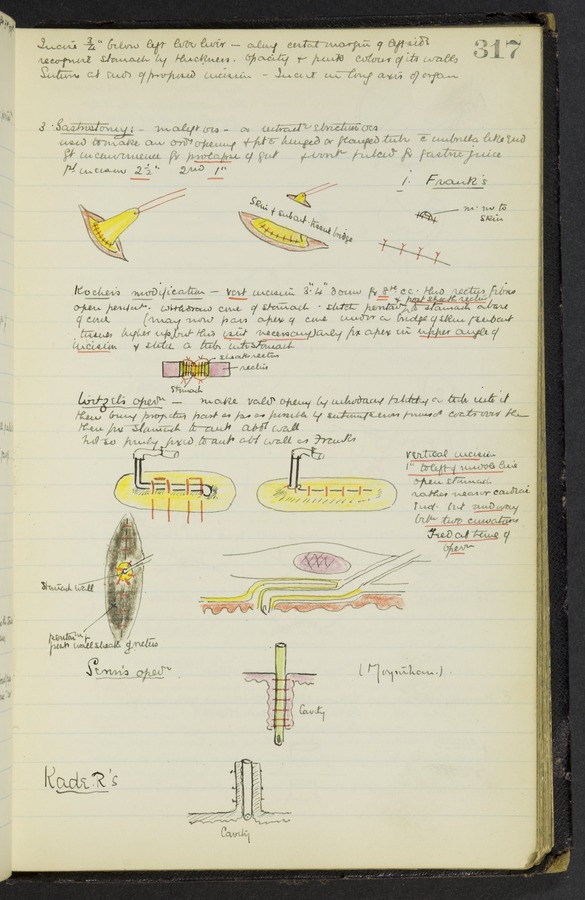 317
Incise 3/4" below left lobe liver – along costal margin of left side
recognise stomach by thickness. Opacity & pink colour of its walls
Suture at ends of proposed incision – Incise in long axis of organ
3. Gastrostomy: – malig't oes – or stricture oes
used to make an ord'y opening & put a flanged tube c umbrella like end
gt inconvenience fr prolapse of gut fr gastric juice
1st incision 2½" 2nd 1"
i. Frank's
Skin & subcut. tissue bridge
m: m to
Skin
Kocher's modification – vert incision 3"-4" down fr 8th c.c. thro rectus fibres
& post sheath rectus
open periton. withdraw cone of stomach. stitch periton to stomach above
of cone (may now pass apex of cone under a bridge of skin & subcut
tissues higher up, but this isn't necessary) fix apex in upper angle of
incision & stitch a tube into stomach
sheath rectus
rectus
Stomach
Witzel's oper'n – make valv'r opening by introducing a tube into it
then bury projecting part as far as possible by suturing serous muscul coats over it
then fix stomach to ant'r abd'l wall
Not so firmly fixed to ant'r abd'l wall as Frank's
vertical incision
1" to left of middle line
open stomach
rather nearer cardiac
End. but midway
betw two curvatures
Fed at time of
oper'n
Stomach wall
periton'm &
post wall sheath of rectus
Senn's oper'n
(Moynihan.)
Cavity
KadeR's
Cavity